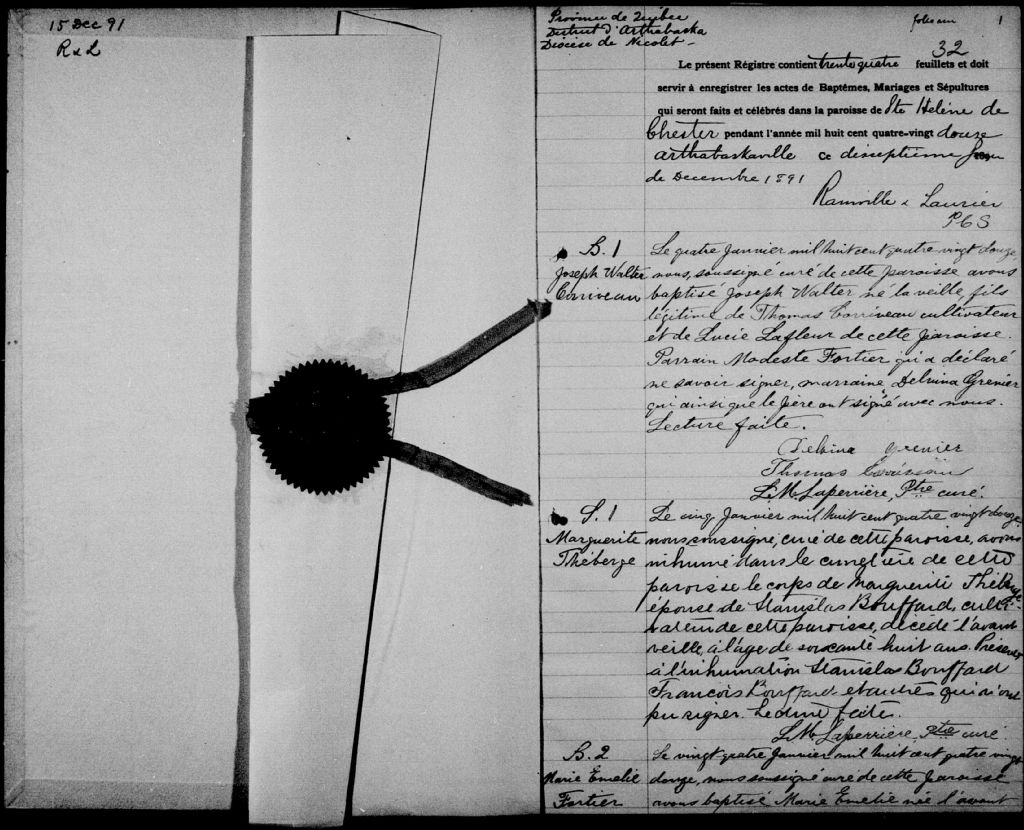 15 Dec 91
R & L
Province de Québec
District d'Arthabaska
Diocèse de Nicolet -
folio 1
32
Le présent Régistre contient trente quatre feuillets et doit
servir à enregistrer les actes de Baptêmes, Mariages et Sépultures
qui seront faits et célébrés dans la paroisse de Ste Hélène de
Chester pendant l'année mil huit cent quatre-vingt douze
Arthabaskaville Ce dixseptième jour
de Decembre 1891
Rainville & Laurier
PCS
B. 1
Joseph Walter
Corriveau
Le quatre Janvier mil huit cent quatre vingt douze,
nous, soussigné curé de cette paroisse avons
baptisé Joseph Walter né la veille, fils
légitime de Thomas Corriveau cultivateur
et de Lucie Lafleur de cette paroisse.
Parrain Modeste Fortier qui a déclaré
ne savoir signer, marraine, Delvina Grenier
qui ainsi que le père ont signé avec nous.
Lecture faite.
Delvina Grenier
Thomas Corriveau
L.M. Laperrière, Ptre curé.
S. 1
Marguerite
Théberge
Le cinq Janvier mil huit cent quatre vingt douze,
nous, soussigné, curé de cette paroisse, avons
inhumé dans le cimetière de cette
paroisse le corps de Marguerite Théberge
épouse de Stanislas Bouffard, culti-
vateur de cette paroisse, décédé l'avant
veille, à l'âge de soixante huit ans. Présents
à l'inhumation Stanislas Bouffard
François Bouffard et autres qui n'ont
pu signer. Lecture faite.
L.M. Laperrière, Ptre curé.
B. 2
Marie Emelie
Fortier
Le vingt quatre Janvier mil huit cent quatre vingt
douze, nous soussigné curé de cette paroisse
avons baptisé Marie Emelie née l'avant